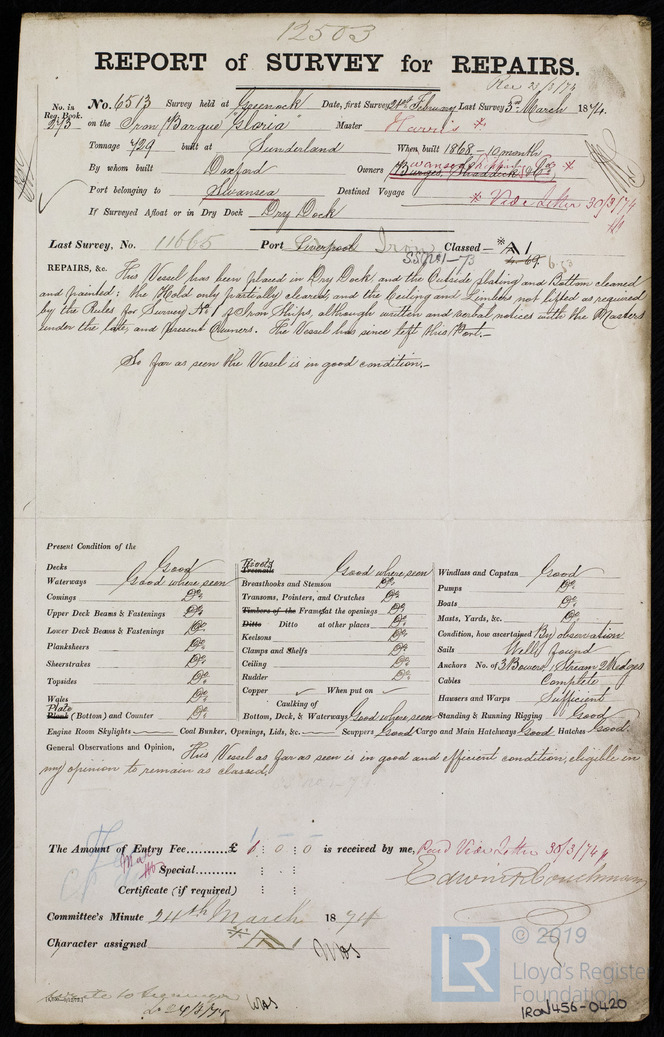 12503
REPORT of SURVEY for REPAIRS.
Rec 23/3/74
No. in Reg. Book. 273
No. 6513 Survey held at Greenock Date, first Survey 21st February Last Survey 5th March 1874.
on the Iron Barque "Gloria" Master Harris *
Tonnage 729 built at Sunderland When built 1868 - 10 month
By whom built Oxford Owners Burgess, Shaddick & Co. *
Port belonging to Swansea Destined Voyage * Vide Letter 30/3/74
If Surveyed Afloat or in Dry Dock Dry Dock
Last Survey, No. 11665 Port Liverpool Iron Classed - *A1
SSNo1-73
REPAIRS, &c. This Vessel has been placed in Dry Dock, and the Outside plating and Bottom cleaned
and painted: the Hold only partially cleared, and the Ceiling and Limbers not lifted as required
by the Rules for Survey No. 1 of Iron Ships, although written and verbal notices with the Masters
under the late, and present Owners. The Vessel has since left this Port.-
So far as seen the Vessel is in good condition.-
Present Condition of the
Decks Good
Waterways Good where seen
Comings Do.
Upper Deck Beams & Fastenings Do.
Lower Deck Beams & Fastenings Do.
Planksheers Do.
Sheerstrakes Do.
Topsides Do.
Wales Do.
Plate
Plank (Bottom) and Counter Do.
Treenails Good where seen
Breasthooks and Stemson Do.
Transoms, Pointers, and Crutches Do.
Timbers of the Frame at the openings Do.
Ditto Ditto at other places Do.
Keelsons Do.
Clamps and Shelfs Do.
Ceiling Do.
Rudder Do.
Copper ✓ When put on ✓
Caulking of
Bottom, Deck, & Waterways Good where seen
Windlass and Capstan Good
Pumps Do.
Boats Do.
Masts, Yards, &c. Do.
Condition, how ascertained By observation
Sails Well found
Anchors No. of 3 Bowers 1 Stream 2 Kedges
Cables Complete
Hausers and Warps Sufficient
Standing & Running Rigging Good
Engine Room Skylights Coal Bunker, Openings, Lids, &c. Scuppers Good Cargo and Main Hatchways Good Hatches Good.
General Observations and Opinion, This Vessel as far as seen is in good and efficient condition, eligible in
my opinion to remain as classed.
The Amount of Entry Fee..........£ 1 : 0 : 0 is received by me, Paid Vide Letter 30/3/74
Special...........
Certificate (if required)
Edwin H Couchman
Committee's Minute 24th March 1874
Character assigned *A1
© 2019
LR
Lloyd's Register
Foundation
IRON456-0420